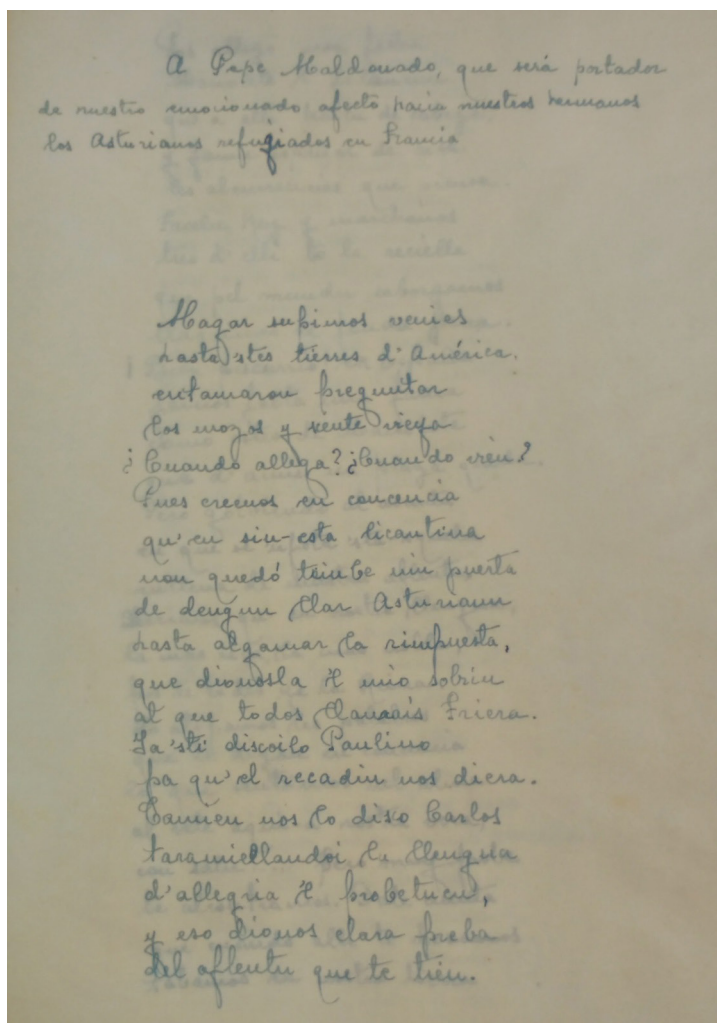 A Pepe Maldonado, que será portador
de nuestro emocionado afecto hacia nuestros hermanos
los Asturianos refugiados en Francia
Magar supimos venies
hasta stes tierres d'América.
entamaron preguntar
los mozos y xente vieya
¿Cuando allega? ¿Cuando vien?
Pues creenos en concencia
qu'en sin-esta licantina
non quedó teinbe nin puerta
de dengun llar Asturianu
hasta algamar la rimpuesta,
que dionosla il mió sobrin
al que todos llamais Friera.
Ya 'sti discoilo Paulino
pa qu'el recadin nos diera.
Tamien nos lo dixo Carlos
taramiellandoi la llengua
d'allegria il probetucu,
y eso dionos clara preba
del aflentu que te tien.